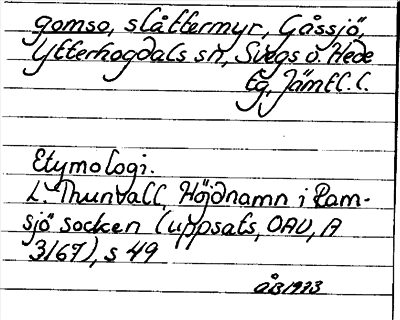 gomso, slåttermyr, Gåssjö,
Ytterhogdals sn, Svegs o. Hede
tg, Jämtl. l.
Etymologi.
L. Thunvall, Höjdnamn i Ram-
sjö socken (uppsats, OAU, A
3167), s 49
ÅB 1973